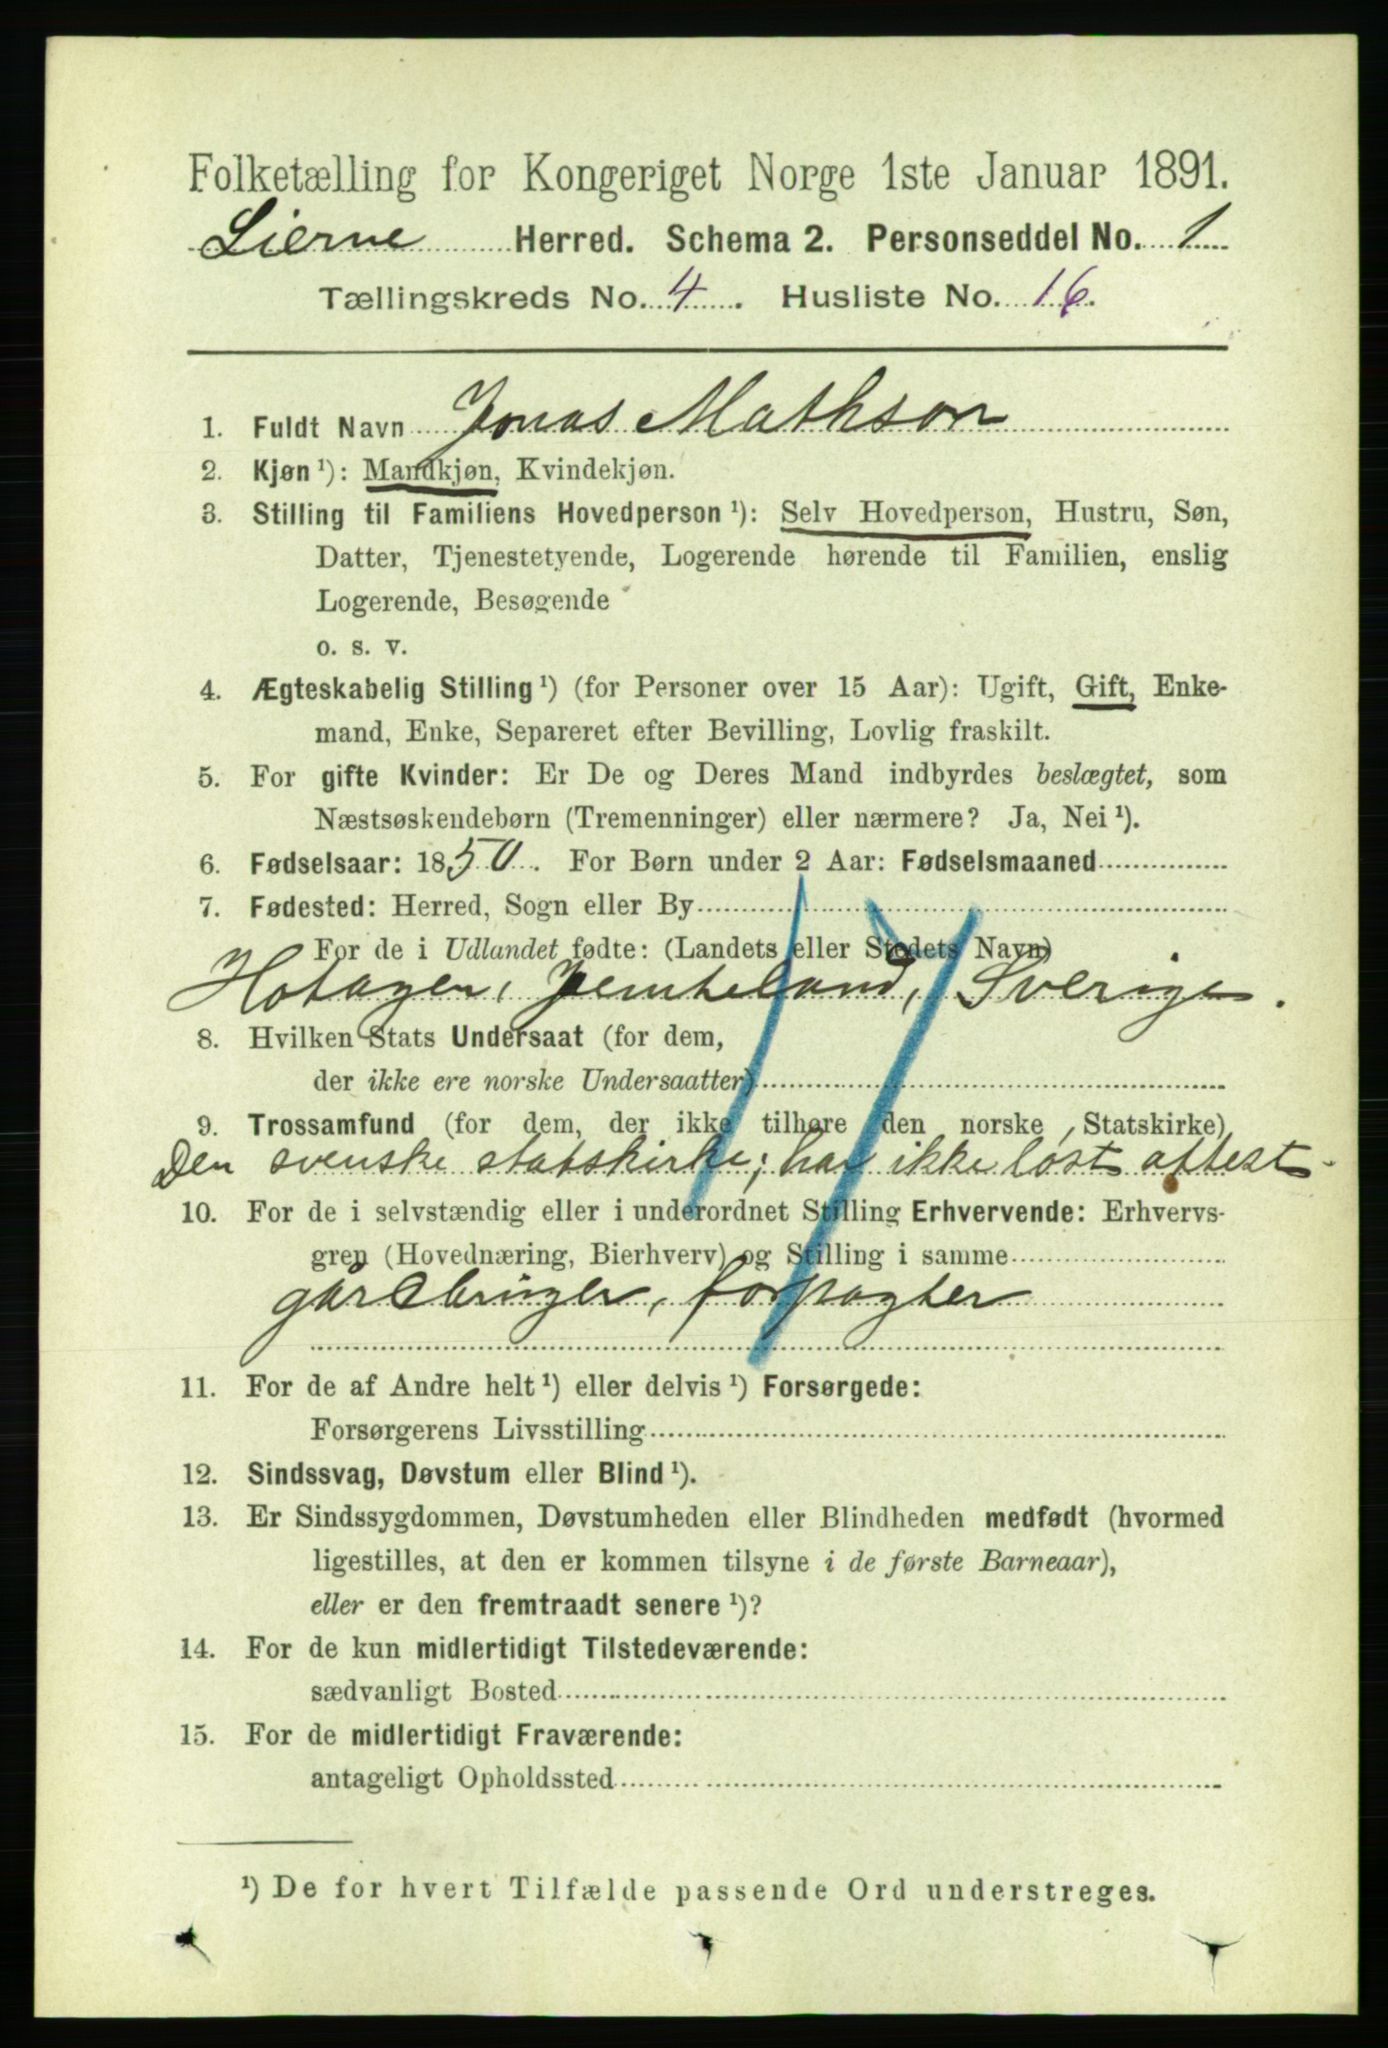 Folketælling for Kongeriget Norge 1ste Januar 1891.
Lierne Herred. Schema 2. Personseddel No. 1
Tællingskreds No. 4. Husliste No. 16.
1. Fuldt Navn Jonas Mathson
2. Kjøn ¹): Mandkjøn, Kvindekjøn.
3. Stilling til Familiens Hovedperson ¹): Selv Hovedperson, Hustru, Søn,
Datter, Tjenestetyende, Logerende hørende til Familien, enslig
Logerende, Besøgende
o. s. v.
4. Ægteskabelig Stilling ¹) (for Personer over 15 Aar): Ugift, Gift, Enke-
mand, Enke, Separeret efter Bevilling, Lovlig fraskilt.
5. For gifte Kvinder: Er De og Deres Mand indbyrdes beslægtet, som
Næstsøskendebørn (Tremenninger) eller nærmere? Ja, Nei ¹).
6. Fødselsaar: 1850. For Børn under 2 Aar: Fødselsmaaned
7. Fødested: Herred, Sogn eller By
For de i Udlandet fødte: (Landets eller Stedets Navn)
Hotagen, Jemteland, Sverige.
8. Hvilken Stats Undersaat (for dem,
der ikke ere norske Undersaatter)
9. Trossamfund (for dem, der ikke tilhøre den norske Statskirke)
Den svenske statskirke; har ikke løst attest.
10. For de i selvstændig eller i underordnet Stilling Erhvervende: Erhvervs-
gren (Hovednæring, Bierhverv) og Stilling i samme
gårdbruger, forpagter
11. For de af Andre helt ¹) eller delvis ¹) Forsørgede:
Forsørgerens Livsstilling
12. Sindssvag, Døvstum eller Blind ¹).
13. Er Sindssygdommen, Døvstumheden eller Blindheden medfødt (hvormed
ligestilles, at den er kommen tilsyne i de første Barneaar),
eller er den fremtraadt senere ¹)?
14. For de kun midlertidigt Tilstedeværende:
sædvanligt Bosted
15. For de midlertidigt Fraværende:
antageligt Opholdssted
¹) De for hvert Tilfælde passende Ord understreges.